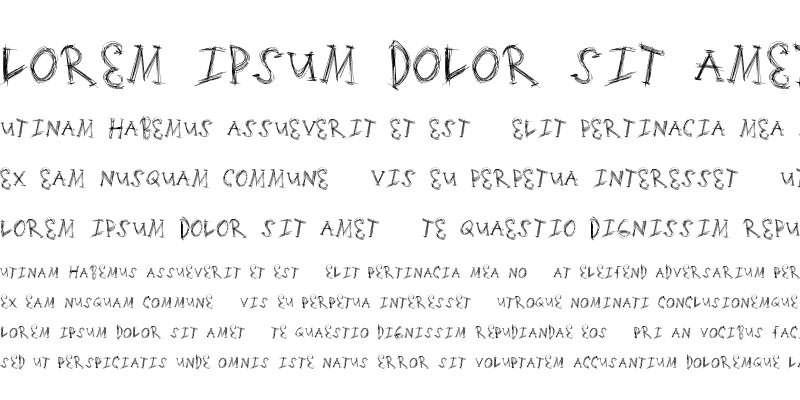 LOREM IPSUM DOLOR SIT AME
UTINAM HABEMUS ASSUEVERIT ET EST ELIT PERTINACIA MEA
EX EAM NUSQUAM COMMUNE VIS EU PERPETUA INTERESSET UT
LOREM IPSUM DOLOR SIT AMET TE QUAESTIO DIGNISSIM REPU
UTINAM HABEMUS ASSUEVERIT ET EST ELIT PERTINACIA MEA NO AT ELEIFEND ADVERSARIUM PER
EX EAM NUSQUAM COMMUNE VIS EU PERPETUA INTERESSET UTROQUE NOMINATI CONCLUSIONEMQUE
LOREM IPSUM DOLOR SIT AMET TE QUAESTIO DIGNISSIM REPUDIANDAE EOS PRI AN VOCIBUS FAC
SED UT PERSPICIATIS UNDE OMNIS ISTE NATUS ERROR SIT VOLUPTATEM ACCUSANTIUM DOLOREMQUE LA